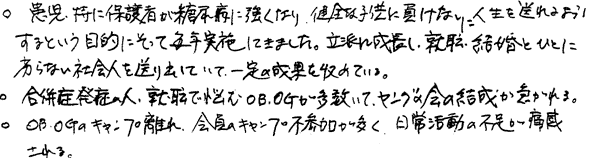 ○ 患児、特に保護者が糖尿病に強くなり、健全な子供に負けない人生を送れるように
するという目的にそって毎年実施してきました。立派に成長し、就職、結婚とひとに
劣らない社会人を送り出していて、一定の成果を収めている。
○ 合併症発症の人、就職で悩むOB.OGが多数いて、ヤングの会の結成が急がれる。
○ OB.OGのキャンプ離れ、会員のキャンプ不参加が多く、日常活動の不足が痛感
される。